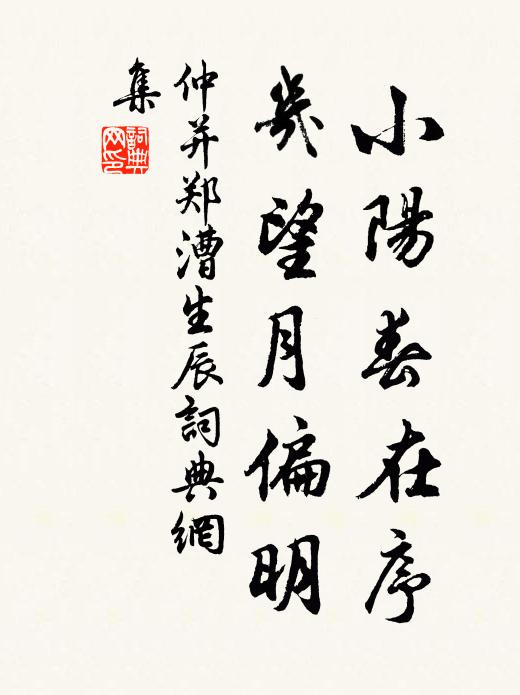 小陽春在序
幾望月偏明
仲并郑漕生辰詞典網
集
詞典
网印